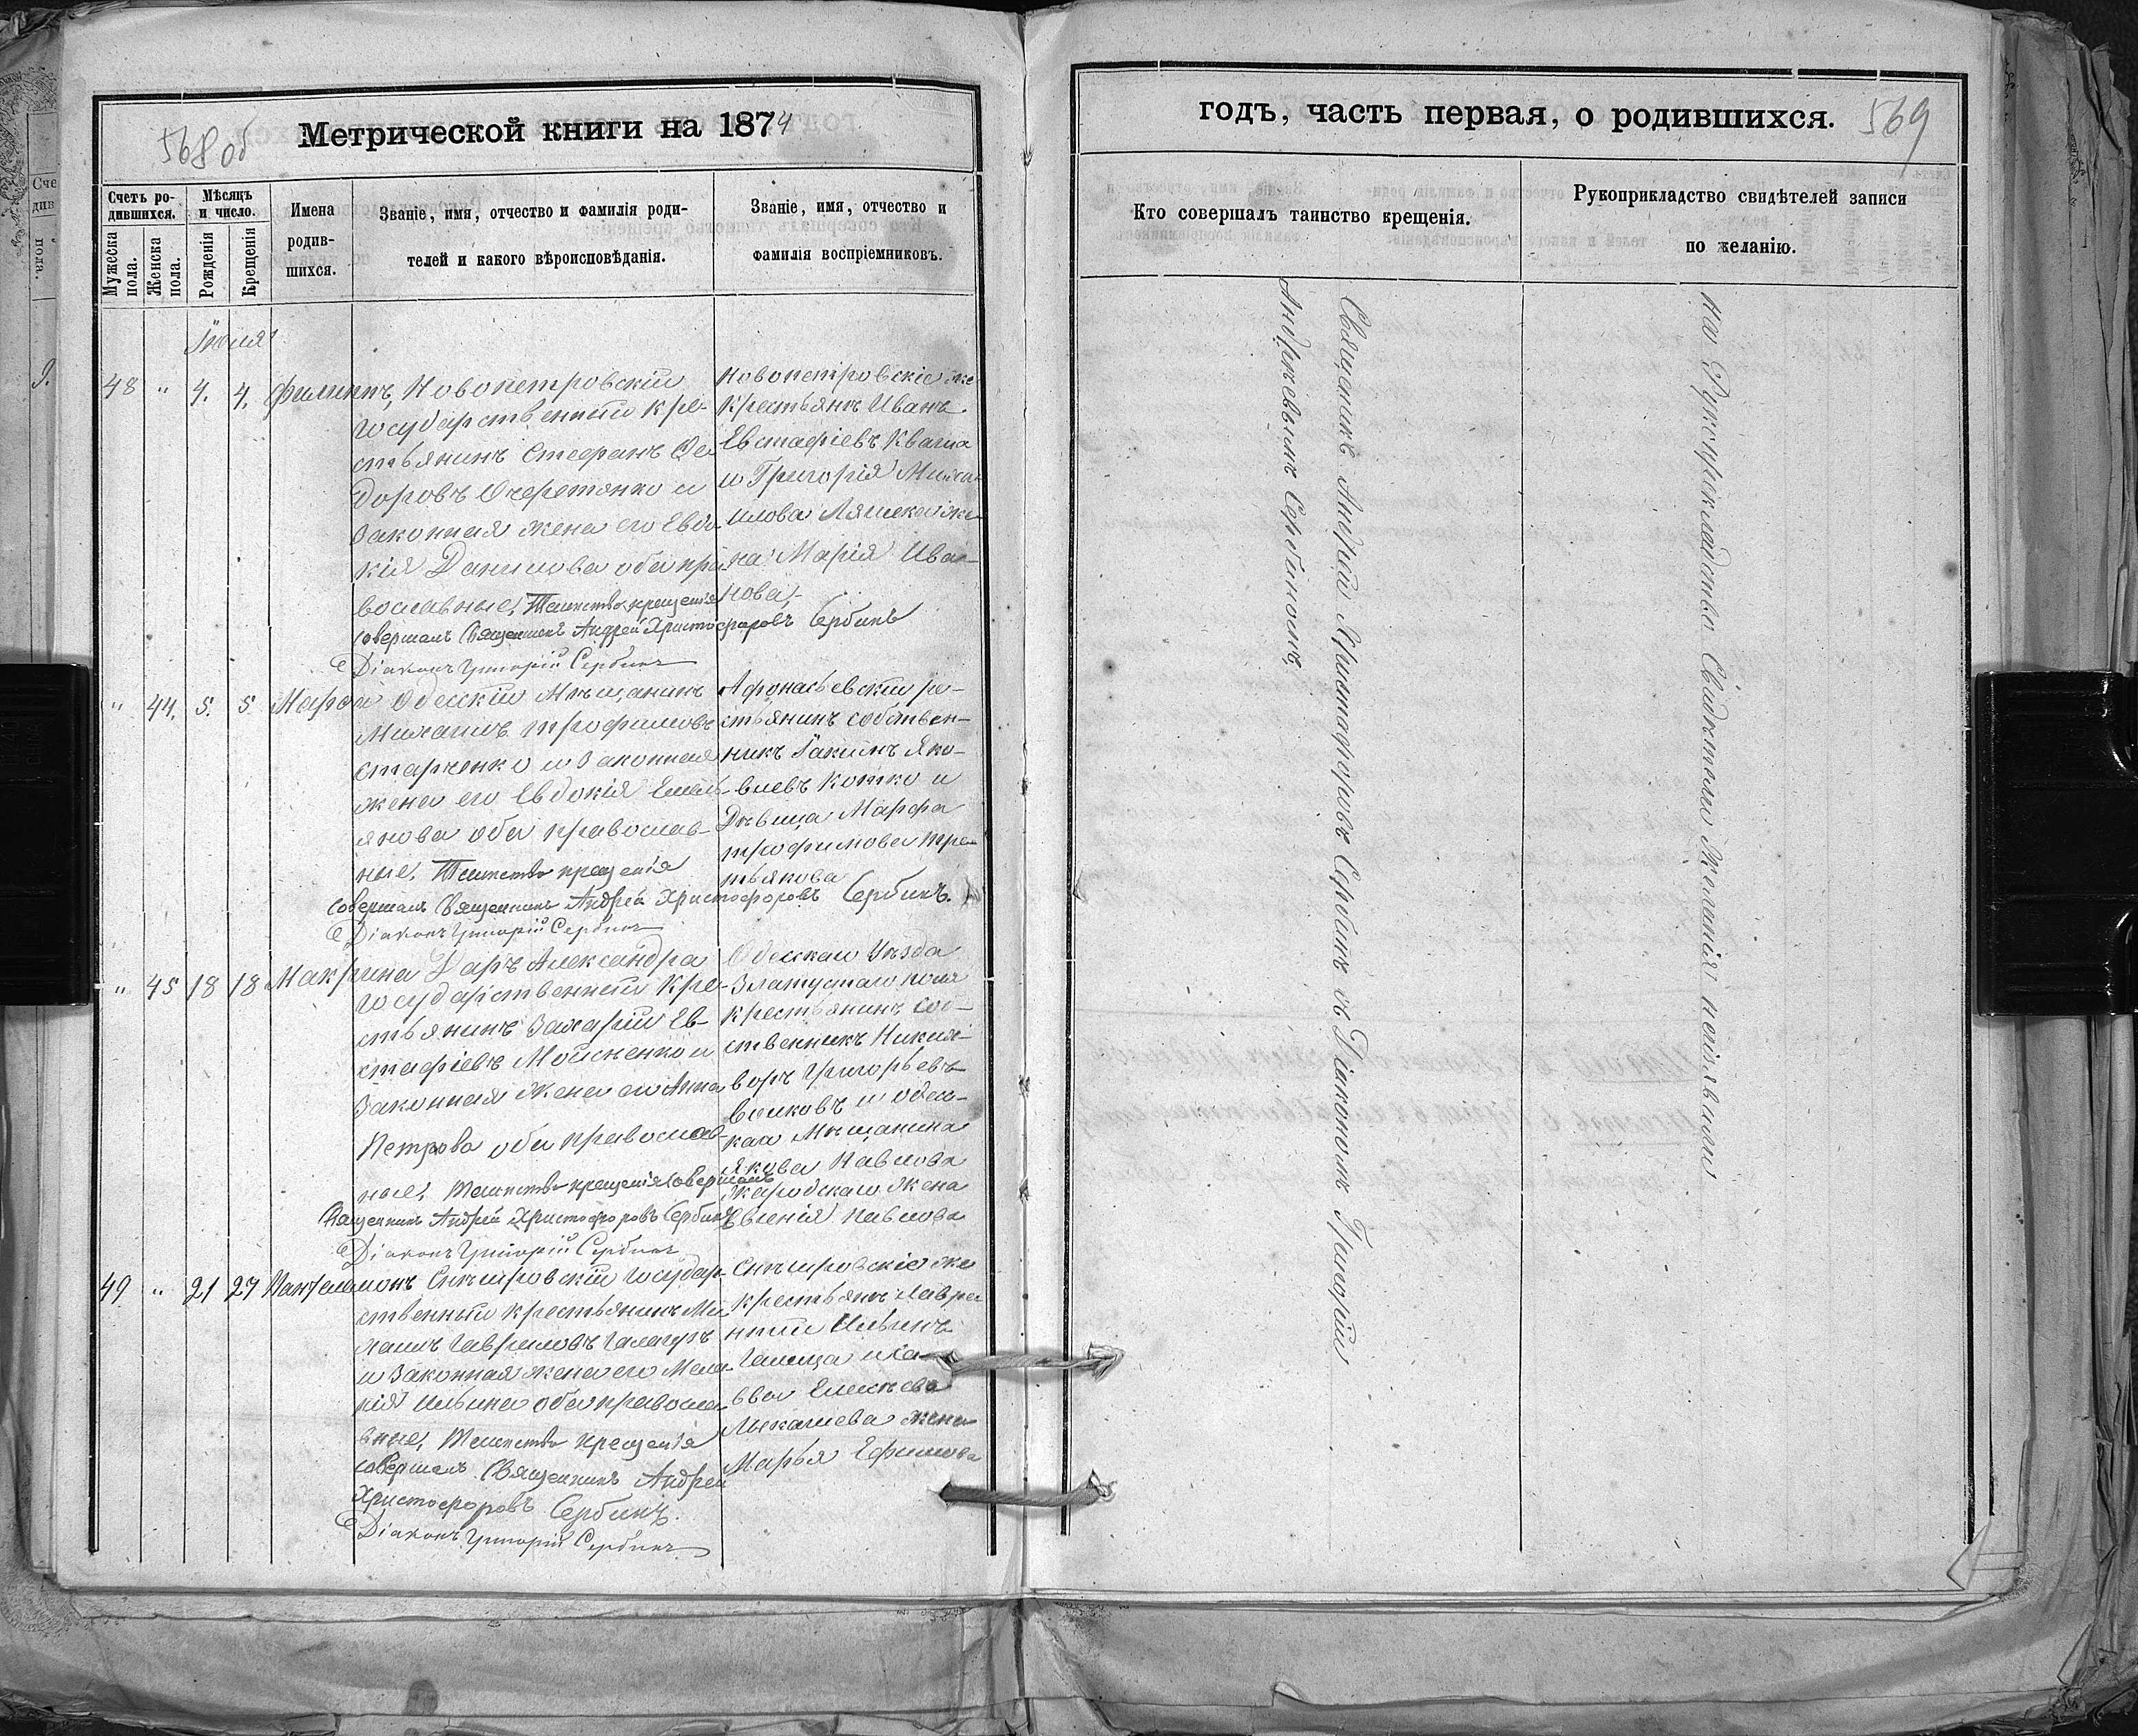 568 об
Метрической книги на 1874
Счетъ ро-
дившихся.
Мужеска
пола.
Женска
пола.
Мѣсяцъ
и число.
Рожденія
Крещенія
Имена
родив-
шихся.
Званіе, имя, отчество и фамилія роди-
телей и какого вѣроисповѣданія.
Званіе, имя, отчество и
фамилія воспріемниковъ.
Іюля
48 " 4. 4. Филиппъ,
Новопетровскій
государственный кре-
стьянинъ Стефанъ Ѳе
доровъ Очеретянко и
законная жена его Евдо
кія Данилова оба пра
вославные, Таинство крещенія
совершалъ Священникъ Андрей Христофоровъ Сербинъ
Діаконъ Григорій Сербинъ
Новопетровскіе же
Крестьяне Иванъ
Евстафіевъ Кваша
и Григорія Миха
илова Ляшека же
на Марія Ива-
нова,
" 44. 5. 5 Марфа
Одесскій Мѣщанинъ
Михаилъ Трофимовъ
Старченко и законная
жена его Евдокія Емель
янова оба православ-
ные, Таинство крещенія
совершалъ Священникъ Андрей Христофоровъ Сербинъ.
Діаконъ Григорій Сербинъ
Афонасьевскій ре-
стьянинъ собствен-
никъ Іакимъ Яко-
влевъ Котко и
Дѣвица Марфа
Трофимова Тре
тьякова
" 45 18 18 Макрина
Даръ Александра
государственный Кре-
стьянинъ Захарій Ев-
стафіевъ Мойсѣенко и
Законная Жена его Анна
Петрова оба православ-
ные, Таинство крещенія совершалъ
Священникъ Андрей Христофоровъ Сербинъ
Діаконъ Григорій Сербинъ
Одесскаго Уѣзда
Златоустаго поля
крестьянинъ соб-
ственникъ Никия-
воръ Григорьевъ
Волковъ и одес-
каа Мѣщанина
Якова Павлова
Жена
Евгенія Павлова
49 " 21 27 Пантелимонъ
Снѣгировскій государ-
ственный крестьянинъ Ми
хаилъ Гавриловъ Галагуръ
и Законная жена его Мела
нія Ильина оба правосла-
вные, Таинство Крещенія
совершалъ Священникъ Андрей
Христофоровъ Сербинъ.
Діаконъ Григорій Сербинъ
Снѣгировскіе же
крестьяне Лавре
нтій Ильинъ
Галица и Са-
вва Елисѣева
жена
Марья Ефимова
годъ, часть первая, о родившихся. 569
Кто совершалъ таинство крещенія.
Рукоприкладство свидѣтелей записи
по желанію.
Священникъ Андрей Христофоровъ Сербинъ съ Діакономъ Григоріем
Андреевымъ Сербиномъ
На Рукоприкладство Свидѣтели Желанія неизъявили